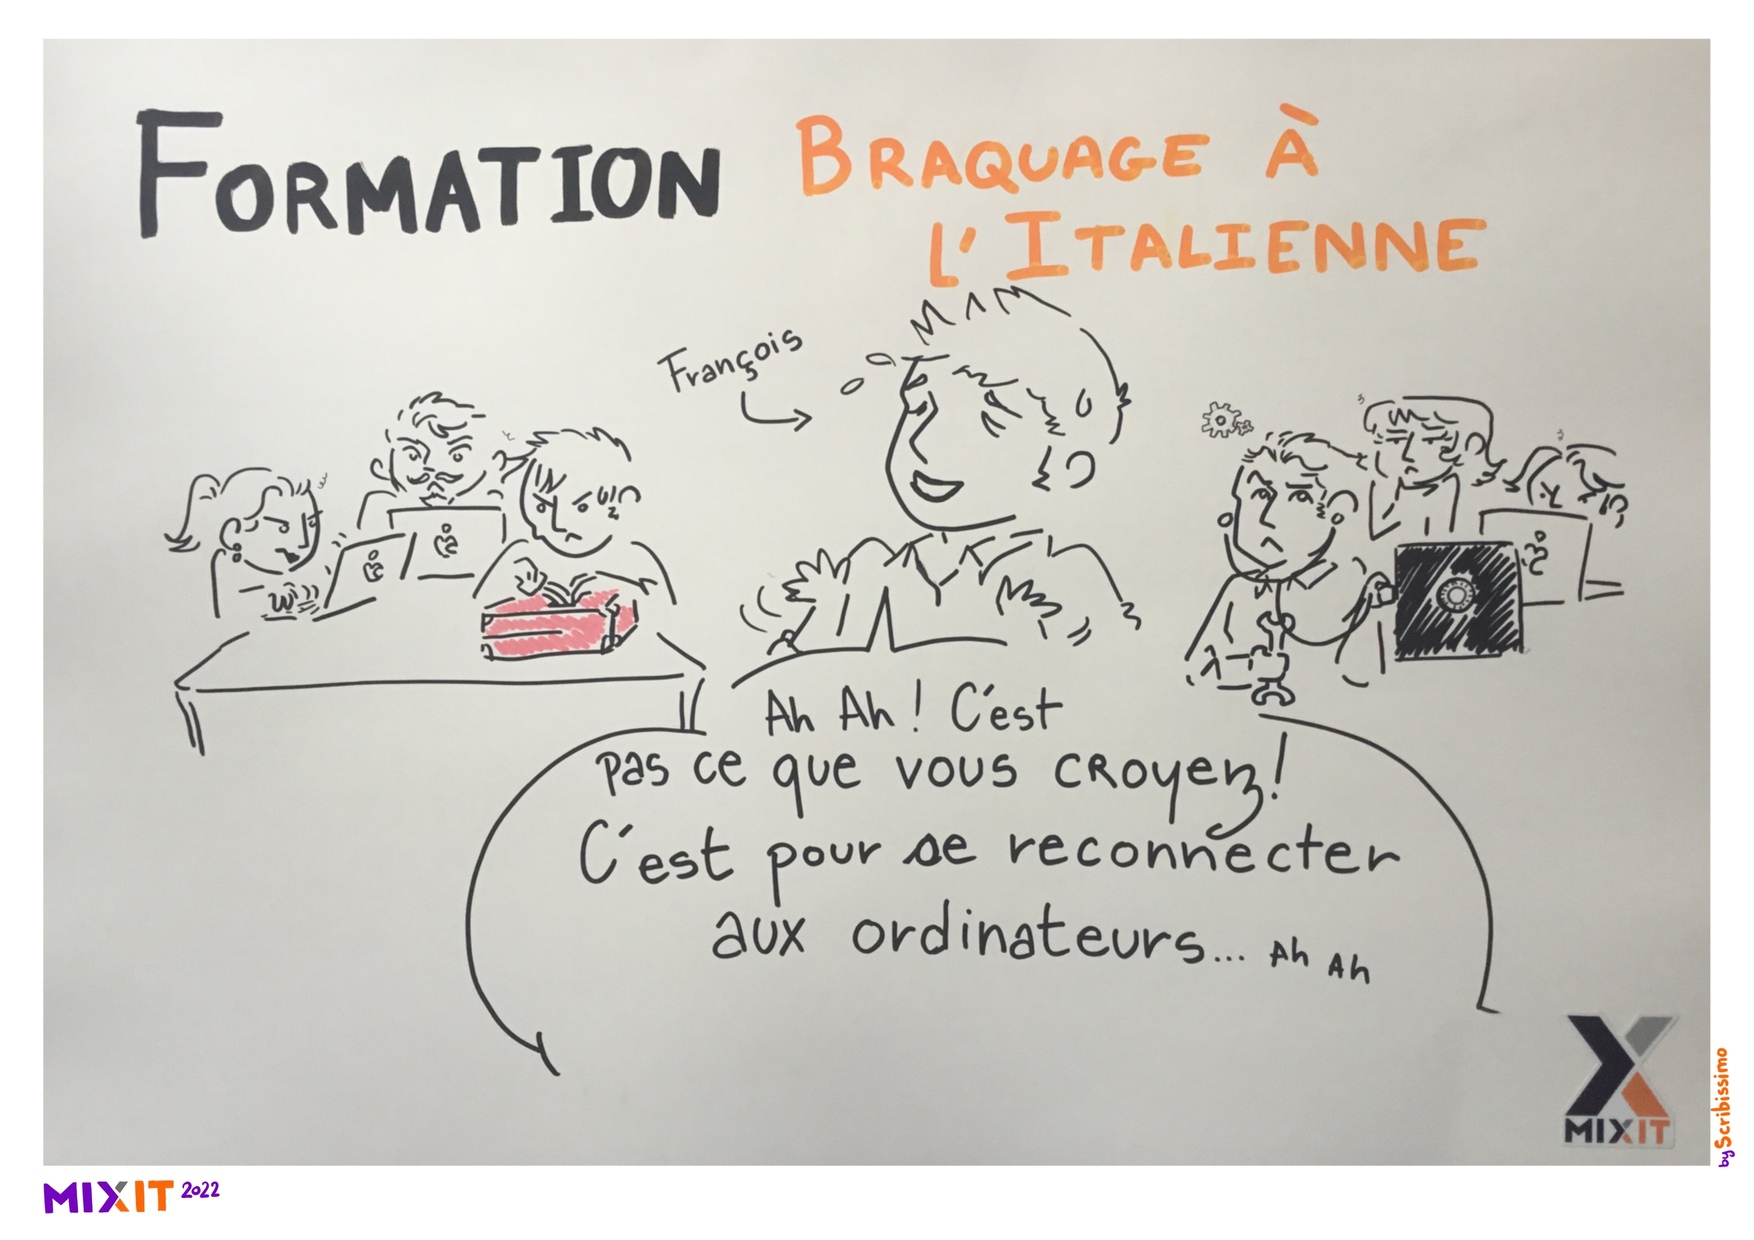 FORMATION
BRAQUAGE À
L'ITALIENNE
François
Ah Ah ! C'est
pas ce que vous croyez !
C'est pour se reconnecter
aux ordinateurs... Ah Ah
MIXIT
by Scribissimo
MIXIT 2022